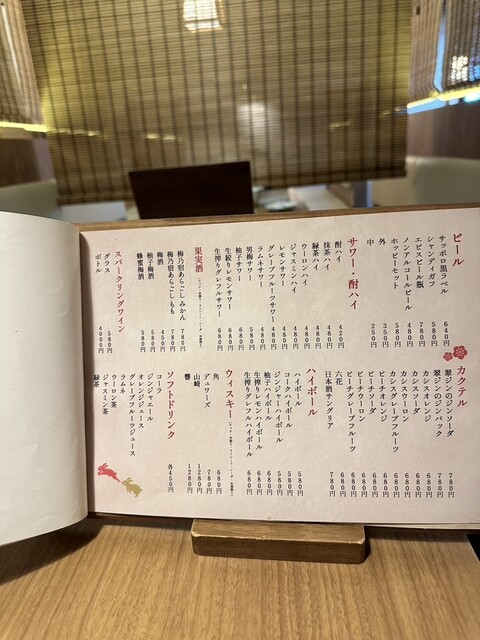 ビール
サッポロ黒ラベル 640円
シャンディガフ 580円
エビスビール瓶 780円
ノンアルコールビール 480円
ホッピーセット 580円
外 350円
中 250円
サワー・酎ハイ
酎ハイ 420円
抹茶ハイ 480円
緑茶ハイ 480円
ウーロンハイ 480円
ジャスミンハイ 480円
レモンサワー 480円
グレープフルーツサワー 480円
ラムネサワー 480円
男梅サワー 580円
柚子サワー 580円
生絞りレモンサワー 680円
生搾りグレフルサワー 680円
果実酒
梅乃宿あらごしみかん 780円
梅乃宿あらごしもも 780円
梅酒 450円
柚子梅酒 580円
蜂蜜梅酒 580円
スパークリングワイン
グラス 580円
ボトル 4000円
カクテル
翠ジンのジンソーダ 780円
翠ジンのジンバック 780円
カシスオレンジ 680円
カシスソーダ 680円
カシスウーロン 680円
カシスグレープフルーツ 680円
ピーチオレンジ 680円
ピーチソーダ 680円
ピーチウーロン 680円
ピーチグレープフルーツ 680円
六花 680円
日本酒サングリア 780円
ハイボール
ハイボール 580円
コークハイボール 580円
ジンジャーハイボール 580円
柚子ハイボール 680円
生搾りレモンハイボール 680円
生搾りグレフルハイボール 680円
ウィスキー
角 680円
デュワーズ 780円
山崎 1280円
響 1280円
ソフトドリンク
コーラ 各450円
ジンジャエール
オレンジジュース
グレープフルーツジュース
ラムネ
ウーロン茶
ジャスミン茶
緑茶